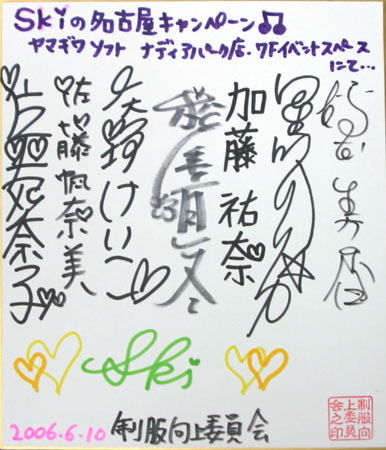 Skiの名古屋キャンペーン♫
ヤマギワソフト ナディアパーク店・7Fイベントスペース
にて…
橋本美香
加藤祐奈
矢野けいこ
佐藤帆奈美
Ski
2006.6.10 制服向上委員会
制服向
上委員
会之印